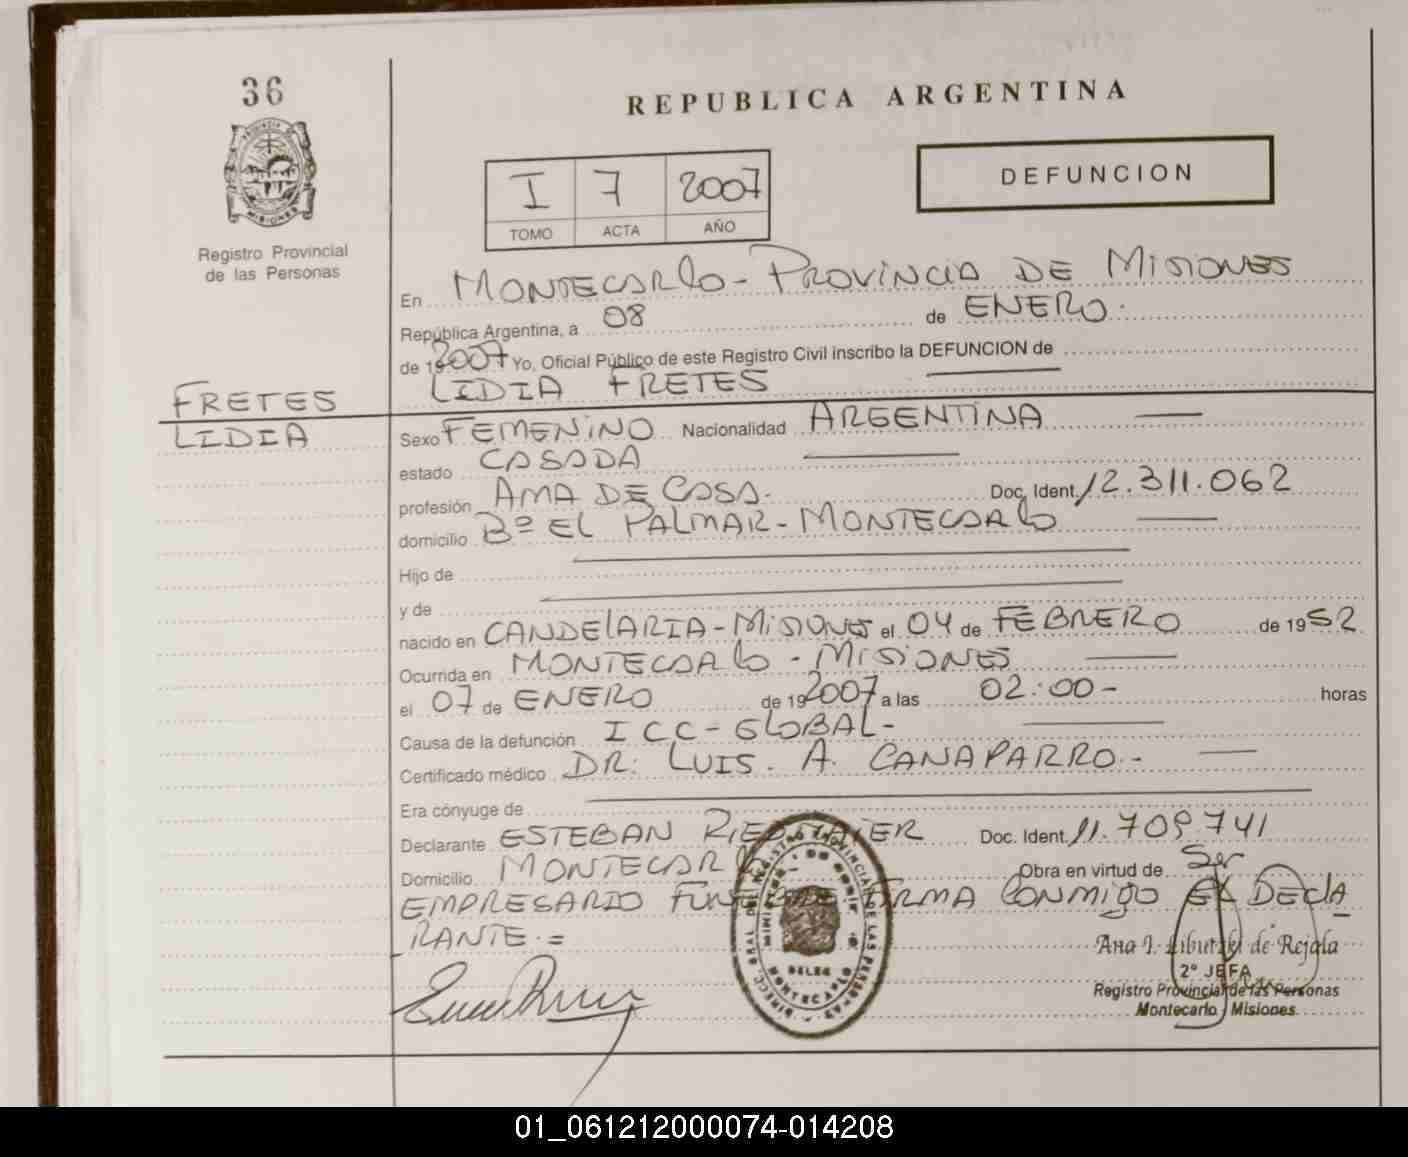 36
REPUBLICA ARGENTINA
PROVINCIA DE
MISIONES
Registro Provincial
de las Personas
I 7 2007
TOMO ACTA AÑO
DEFUNCION
En MONTECARLO - PROVINCIA DE MISIONES
República Argentina, a 08 de ENERO.
de 19 2007 Yo, Oficial Público de este Registro Civil inscribo la DEFUNCION de
LIDIA FRETES
FRETES
LIDIA
Sexo FEMENINO Nacionalidad ARGENTINA
estado CASADA
profesión AMA DE CASA. Doc. Ident. 12.311.062
domicilio Bº EL PALMAR - MONTECARLO
Hijo de
y de
nacido en CANDELARIA - MISIONES el 04 de FEBRERO de 1952
Ocurrida en MONTECARLO - MISIONES
el 07 de ENERO de 19 2007 a las 02:00- horas
Causa de la defunción ICC - GLOBAL-
Certificado médico DR. LUIS. A. CANAPARRO.-
Era cónyuge de
Declarante ESTEBAN Doc. Ident. 11.709.741
Domicilio MONTECARLO Obra en virtud de Ser
EMPRESARIO FUNEBRE FIRMA CONMIGO EL DECLA
RANTE.=
Ana I. de Rejala
2º JEFA
Registro Provincial de las Personas
Montecarlo - Misiones
01_061212000074-014208